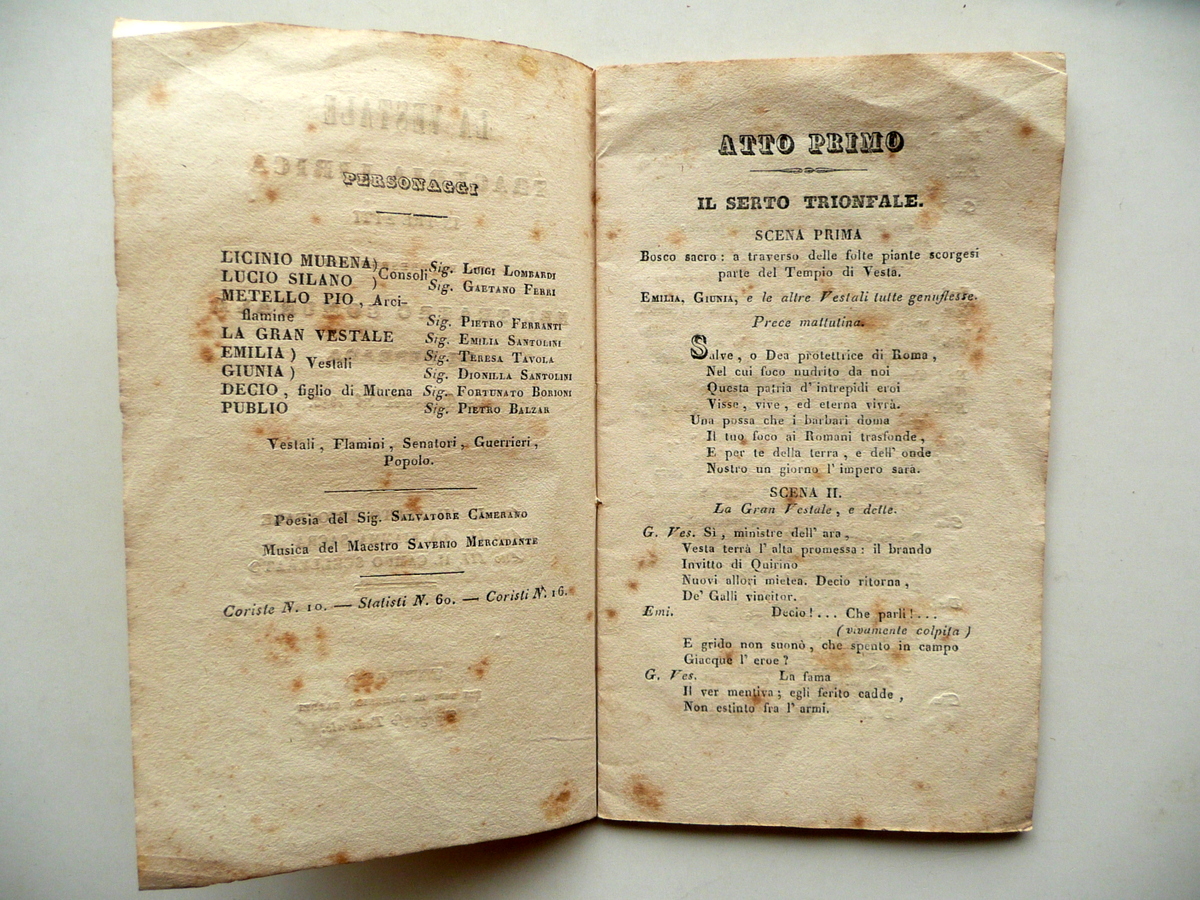 PERSONAGGI
LICINIO MURENA) Consoli Sig. LUIGI LOMBARDI
LUCIO SILANO ) Sig. GAETANO FERRI
METELLO PIO, Arci-
flamine Sig. PIETRO FERRANTI
LA GRAN VESTALE Sig. EMILIA SANTOLINI
EMILIA ) Vestali Sig. TERESA TAVOLA
GIUNIA ) Sig. DIONILLA SANTOLINI
DECIO, figlio di Murena Sig. FORTUNATO BORIONI
PUBLIO Sig. PIETRO BALZAR
Vestali, Flamini, Senatori, Guerrieri,
Popolo.
Poesia del Sig. SALVATORE CAMERANO
Musica del Maestro SAVERIO MERCADANTE
Coriste N. 10. — Statisti N. 60. — Coristi N. 16.
ATTO PRIMO
IL SERTO TRIONFALE.
SCENA PRIMA
Bosco sacro: a traverso delle folte piante scorgesi
parte del Tempio di Vesta.
EMILIA, GIUNIA, e le altre Vestali tutte genuflesse.
Prece mattutina.
Salve, o Dea protettrice di Roma,
Nel cui foco nudrito da noi
Questa patria d' intrepidi eroi
Visse, vive, ed eterna vivrà.
Una possa che i barbari doma
Il tuo foco ai Romani trasfonde,
E per te della terra, e dell' onde
Nostro un giorno l' impero sarà.
SCENA II.
La Gran Vestale, e dette.
G. Ves. Sì, ministre dell' ara,
Vesta terrà l' alta promessa: il brando
Invitto di Quirino
Nuovi allori mietea. Decio ritorna,
De' Galli vincitor.
Emi. Decio!... Che parli!...
(vivamente colpita)
E grido non suonò, che spento in campo
Giacque l' eroe?
G. Ves. La fama
Il ver mentiva; egli ferito cadde,
Non estinto fra l' armi.